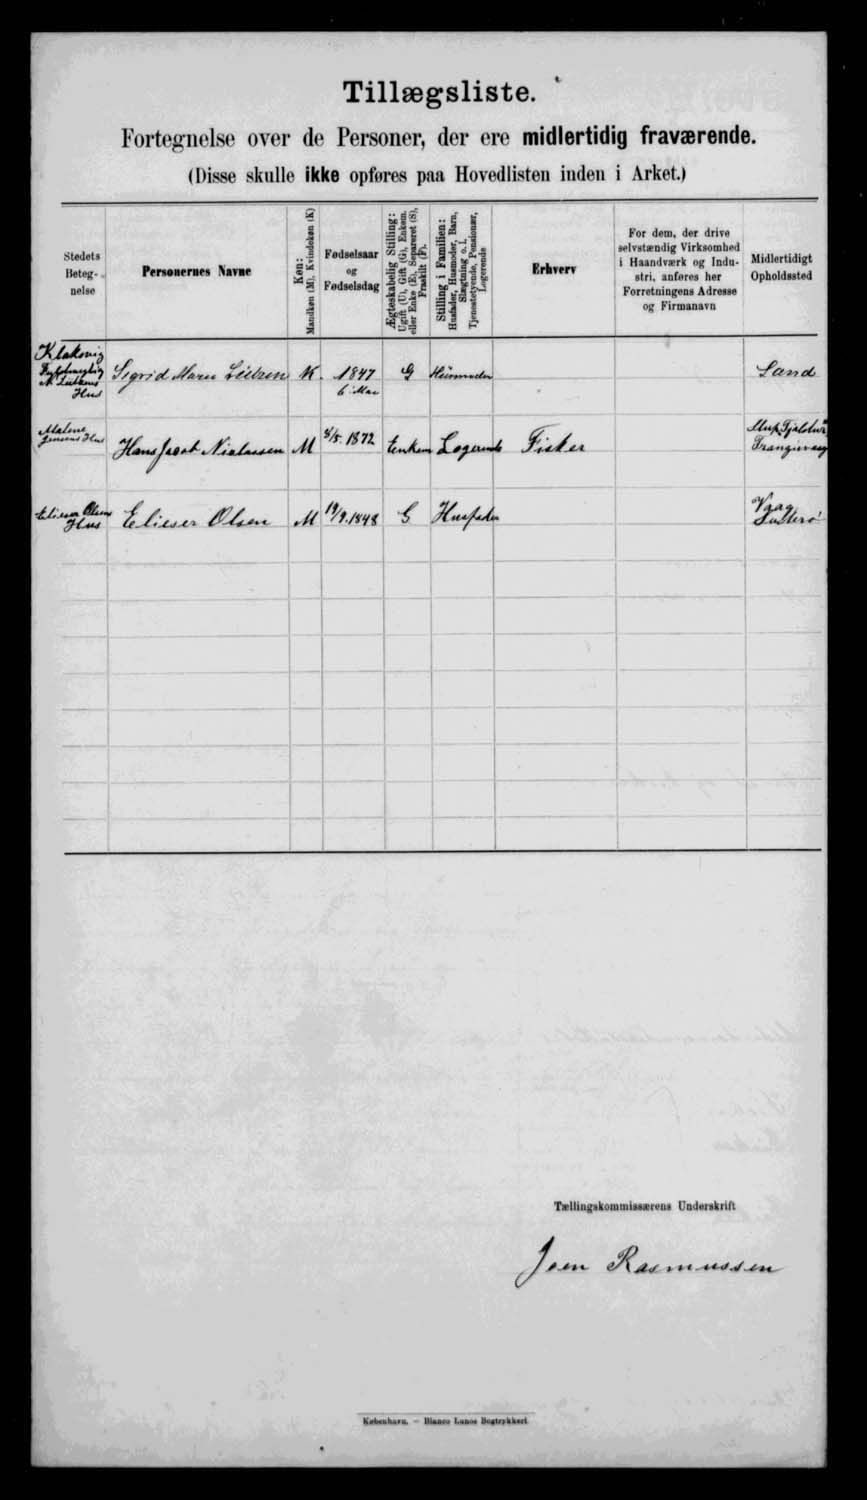 Tillægsliste.
Fortegnelse over de Personer, der ere midlertidig fraværende.
(Disse skulle ikke opføres paa Hovedlisten inden i Arket.)
Stedets
Beteg-
nelse
Personernes Navne
Køn:
Mandkøn (M), Kvindekøn (K)
Fødselsaar
og
Fødselsdag
Ægteskabelig Stilling:
Ugift (U), Gift (G), Enkem.
eller Enke (E), Separeret (S),
Fraskilt (F).
Stilling i Familien:
Husfader, Husmoder, Barn,
Slægtning o. l.
Tjenestetyende, Pensionær,
Logerende
Erhverv
For dem, der drive
selvstændig Virksomhed
i Haandværk og Indu-
stri, anføres her
Forretningens Adresse
og Firmanavn
Midlertidigt
Opholdssted
Klaksvig
Hus
Sigrid Maren K. 1847 G Husmoder Sand
6 Mar
Malene
Jensens Hus
Hans Jacob Niclassen M 4/5. 1872 Enkem Logerende Fisker
Trangisvaag
Elieser Olsens
Hus
Elieser Olsen M 19/9.1848 G Husfader
Vaag
Suderø
Tællingskommissærens Underskrift
Joen Rasmussen
København. — Bianco Lunos Bogtrykkeri